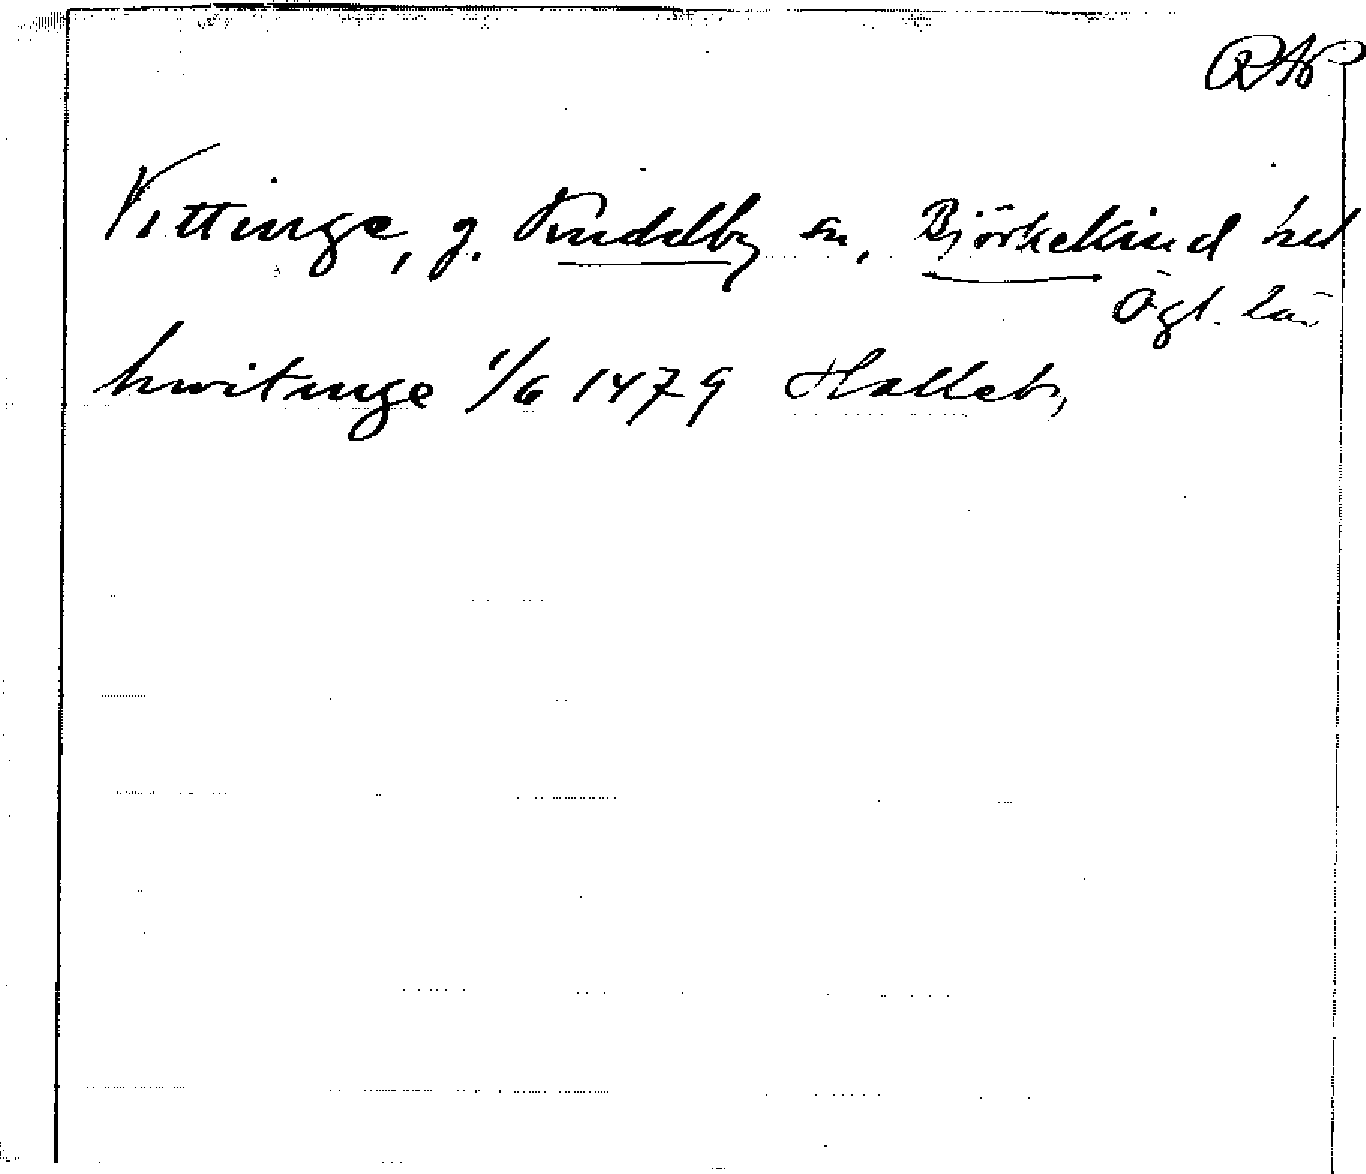 RAP
Vittinge, g. Kuddby sn, Björkekind hd
Ögl. län
hwitinge 1/6 1479 Halleby